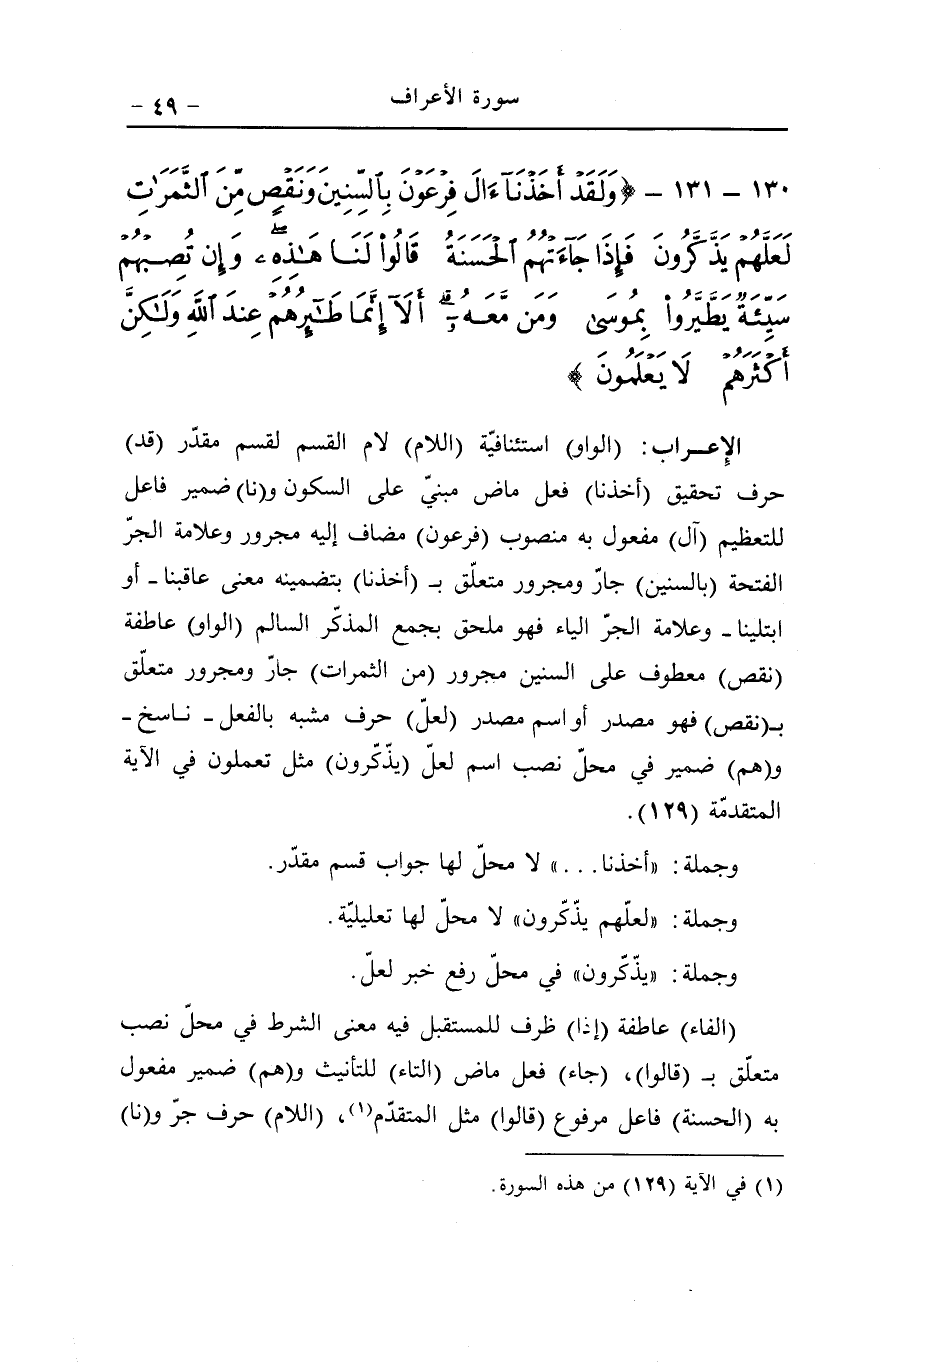 سورة الأعراف - ٤٩ -
١٣٠ - ١٣١ - ﴿وَلَقَدْ أَخَذْنَآ ءَالَ فِرْعَوْنَ بِٱلسِّنِينَ وَنَقْصٍ مِّنَ ٱلثَّمَرَٰتِ
لَعَلَّهُمْ يَذَّكَّرُونَ فَإِذَا جَآءَتْهُمُ ٱلْحَسَنَةُ قَالُوا۟ لَنَا هَـٰذِهِۦ ۖ وَإِن تُصِبْهُمْ
سَيِّئَةٌ يَطَّيَّرُوا۟ بِمُوسَىٰ وَمَن مَّعَهُۥٓ ۗ أَلَآ إِنَّمَا طَـٰٓئِرُهُمْ عِندَ ٱللَّهِ وَلَـٰكِنَّ
أَكْثَرَهُمْ لَا يَعْلَمُونَ﴾
الإعـراب: (الواو) استئنافيّة (اللام) لام القسم لقسم مقدّر (قد)
حرف تحقيق (أخذنا) فعل ماض مبنيّ على السكون و(نا) ضمير فاعل
للتعظيم (آل) مفعول به منصوب (فرعون) مضاف إليه مجرور وعلامة الجرّ
الفتحة (بالسنين) جارّ ومجرور متعلّق بـ (أخذنا) بتضمينه معنى عاقبنا - أو
ابتلينا - وعلامة الجرّ الياء فهو ملحق بجمع المذكّر السالم (الواو) عاطفة
(نقص) معطوف على السنين مجرور (من الثمرات) جارّ ومجرور متعلّق
بـ(نقص) فهو مصدر أو اسم مصدر (لعلّ) حرف مشبه بالفعل - ناسخ -
و(هم) ضمير في محلّ نصب اسم لعلّ (يذّكّرون) مثل تعملون في الآية
المتقدمّة (١٢٩).
وجملة: «أخذنا...» لا محلّ لها جواب قسم مقدّر.
وجملة: «لعلّهم يذّكّرون» لا محلّ لها تعليليّة.
وجملة: «يذّكّرون» في محلّ رفع خبر لعلّ.
(الفاء) عاطفة (إذا) ظرف للمستقبل فيه معنى الشرط في محلّ نصب
متعلّق بـ (قالوا)، (جاء) فعل ماض (التاء) للتأنيث و(هم) ضمير مفعول
به (الحسنة) فاعل مرفوع (قالوا) مثل المتقدّم(١)، (اللام) حرف جرّ و(نا)
(١) في الآية (١٢٩) من هذه السورة.